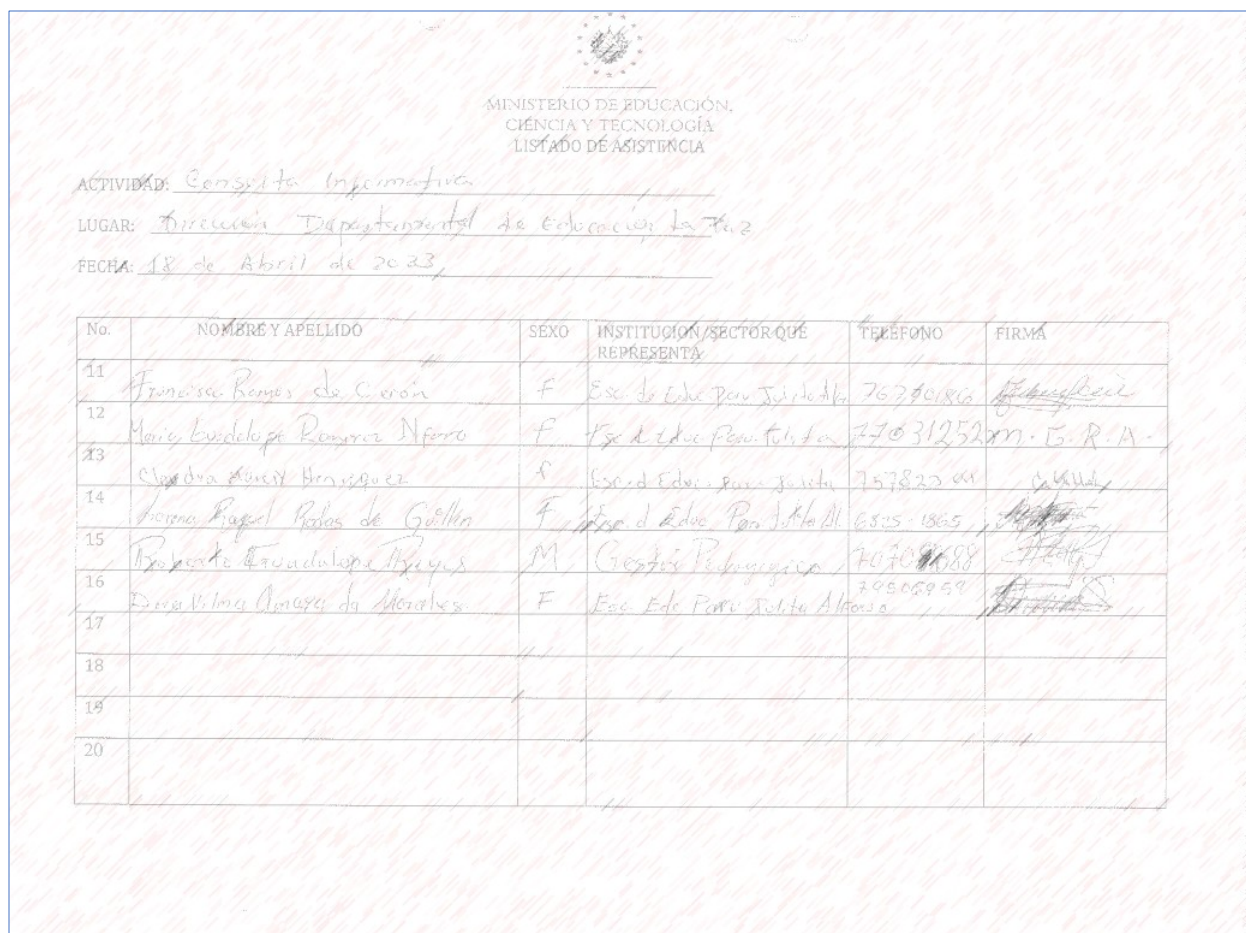 MINISTERIO DE EDUCACIÓN,
CIENCIA Y TECNOLOGÍA
LISTADO DE ASISTENCIA
ACTIVIDAD: Consulta Informativa
LUGAR: Dirección Departamental de Educación La Paz
FECHA: 18 de Abril de 2023
No. NOMBRE Y APELLIDO SEXO INSTITUCION/SECTOR QUE REPRESENTA TELÉFONO FIRMA
11 Francisca Ramos de Cerón F Esc. de Educ Parv
12 Maria Guadalupe Ramirez F Esc d Educ Parv. 77031252 M.G.R.A.
13 Henriquez F Esc. d Educ. Parv. Julita
14 Raquel Rodas de Guillen F Esc d Educ Parv Julita Al. 6325-1865
15 Roberto Guadalupe Reyes M Gestor Pedagogico
16 Vilma Amaya de Morales F Esc. Edc Parv Julita Alfonso 79506959
17
18
19
20